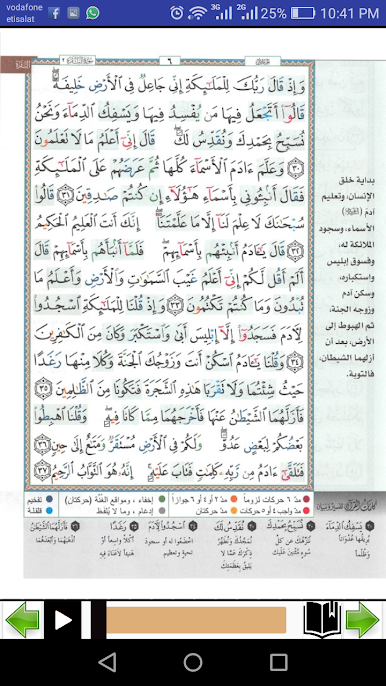 vodafone
etisalat
3G
2G
25%
10:41 PM
٦
وَإِذْ قَالَ رَبُّكَ لِلْمَلَٰٓئِكَةِ إِنِّي جَاعِلٌ فِي ٱلْأَرْضِ خَلِيفَةً ۖ
قَالُوٓا۟ أَتَجْعَلُ فِيهَا مَن يُفْسِدُ فِيهَا وَيَسْفِكُ ٱلدِّمَآءَ وَنَحْنُ
نُسَبِّحُ بِحَمْدِكَ وَنُقَدِّسُ لَكَ ۖ قَالَ إِنِّيٓ أَعْلَمُ مَا لَا تَعْلَمُونَ
٣٠ وَعَلَّمَ ءَادَمَ ٱلْأَسْمَآءَ كُلَّهَا ثُمَّ عَرَضَهُمْ عَلَى ٱلْمَلَٰٓئِكَةِ
فَقَالَ أَنۢبِـُٔونِي بِأَسْمَآءِ هَٰٓؤُلَآءِ إِن كُنتُمْ صَٰدِقِينَ ٣١ قَالُوا۟
سُبْحَٰنَكَ لَا عِلْمَ لَنَآ إِلَّا مَا عَلَّمْتَنَآ ۖ إِنَّكَ أَنتَ ٱلْعَلِيمُ ٱلْحَكِيمُ
٣٢ قَالَ يَٰٓـَٔادَمُ أَنۢبِئْهُم بِأَسْمَآئِهِمْ ۖ فَلَمَّآ أَنۢبَأَهُم بِأَسْمَآئِهِمْ قَالَ
أَلَمْ أَقُل لَّكُمْ إِنِّيٓ أَعْلَمُ غَيْبَ ٱلسَّمَٰوَٰتِ وَٱلْأَرْضِ وَأَعْلَمُ مَا
تُبْدُونَ وَمَا كُنتُمْ تَكْتُمُونَ ٣٣ وَإِذْ قُلْنَا لِلْمَلَٰٓئِكَةِ ٱسْجُدُوا۟
لِـَٔادَمَ فَسَجَدُوٓا۟ إِلَّآ إِبْلِيسَ أَبَىٰ وَٱسْتَكْبَرَ وَكَانَ مِنَ ٱلْكَٰفِرِينَ
٣٤ وَقُلْنَا يَٰٓـَٔادَمُ ٱسْكُنْ أَنتَ وَزَوْجُكَ ٱلْجَنَّةَ وَكُلَا مِنْهَا رَغَدًا
حَيْثُ شِئْتُمَا وَلَا تَقْرَبَا هَٰذِهِ ٱلشَّجَرَةَ فَتَكُونَا مِنَ ٱلظَّٰلِمِينَ ٣٥
فَأَزَلَّهُمَا ٱلشَّيْطَٰنُ عَنْهَا فَأَخْرَجَهُمَا مِمَّا كَانَا فِيهِ ۖ وَقُلْنَا ٱهْبِطُوا۟
بَعْضُكُمْ لِبَعْضٍ عَدُوٌّ ۖ وَلَكُمْ فِي ٱلْأَرْضِ مُسْتَقَرٌّ وَمَتَٰعٌ إِلَىٰ حِينٍ ٣٦
فَتَلَقَّىٰٓ ءَادَمُ مِن رَّبِّهِۦ كَلِمَٰتٍ فَتَابَ عَلَيْهِ ۚ إِنَّهُۥ هُوَ ٱلتَّوَّابُ ٱلرَّحِيمُ ٣٧
بداية خلق
الإنسان، وتعليم
آدم
الأسماء، وسجود
الملائكة له،
وفسوق إبليس
واستكباره،
وسكن آدم
وزوجه الجنة،
ثم الهبوط إلى
الأرض، بعد أن
أزلهما الشيطان،
فالتوبة.
مدّ ٦ حركات لزوماً
مدّ ٢ أو ٤ أو ٦ جوازاً
إخفاء، ومواقع الغنّة (حركتان)
تفخيم
مدّ واجب ٤ أو ٥ حركات
مدّ حركتان
إدغام، وما لا يُلفظ
قلقلة